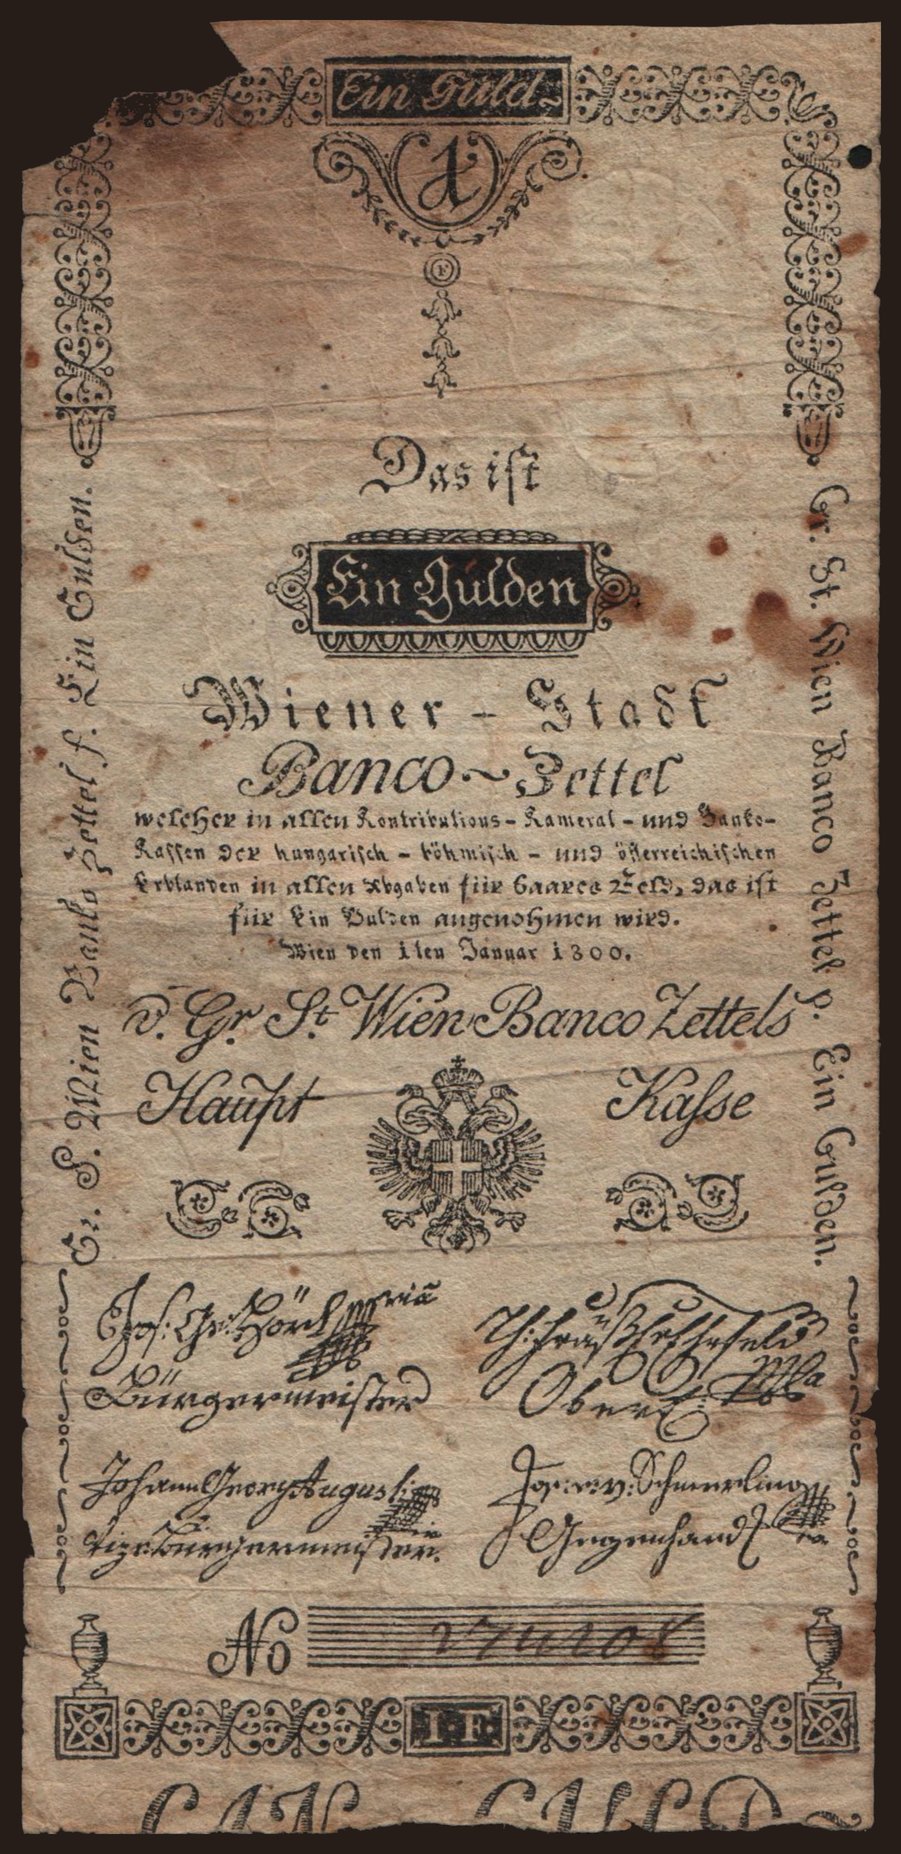 Ein Guld~
1
F
Das ist
Ein Gulden
Wiener - Stadt
Banco ~ Zettel
welcher in allen Kontributions - Kameral - und Banko-
Kassen der hungarisch - böhmisch - und österreichischen
Erblanden in allen Abgaben für baares Geld, das ist
für Ein Gulden angenohmen wird.
Wien den 1ten Januar 1800.
d. Gr. St. Wien Banco Zettels
Haupt Kasse
Gr. S. Wien Banko Zettel f. Ein Gulden.
Gr. St. Wien Banco Zettel p. Ein Gulden.
Jos: Geo: Hörl
Bürgermeister
Johann Georg Augusti
Vize Bürgermeister.
v: Schmerling
Gegenhand
No
1·F